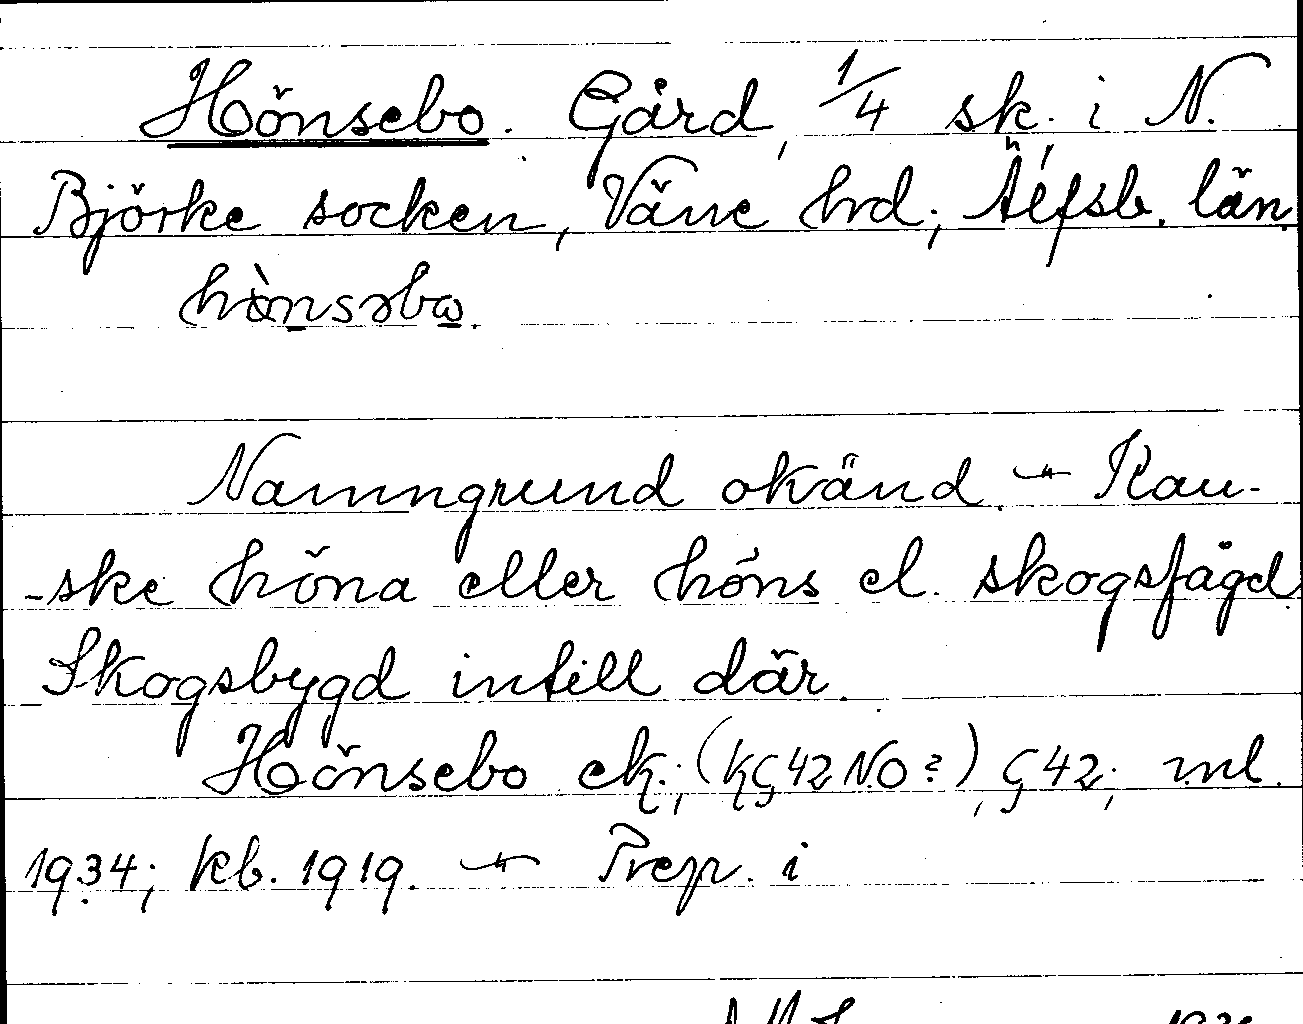 Hönsebo. Gård, 1/4 sk. i N.
Björke socken, Väne hrd; Älfsb. län.
Namngrund okänd. - Kan-
-ske höna eller höns el. skogsfågel.
Skogsbygd intill där.
Hönsebo ek.; (KG42NO?), G42; ml.
1934; kb. 1919. - Prep. i